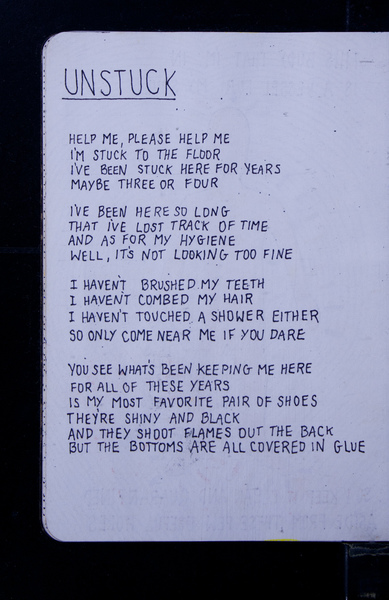 UNSTUCK
HELP ME, PLEASE HELP ME
I'M STUCK TO THE FLOOR
I'VE BEEN STUCK HERE FOR YEARS
MAYBE THREE OR FOUR
I'VE BEEN HERE SO LONG
THAT I'VE LOST TRACK OF TIME
AND AS FOR MY HYGIENE
WELL, IT'S NOT LOOKING TOO FINE
I HAVEN'T BRUSHED MY TEETH
I HAVEN'T COMBED MY HAIR
I HAVEN'T TOUCHED A SHOWER EITHER
SO ONLY COME NEAR ME IF YOU DARE
YOU SEE WHAT'S BEEN KEEPING ME HERE
FOR ALL OF THESE YEARS
IS MY MOST FAVORITE PAIR OF SHOES
THEY'RE SHINY AND BLACK
AND THEY SHOOT FLAMES OUT THE BACK
BUT THE BOTTOMS ARE ALL COVERED IN GLUE